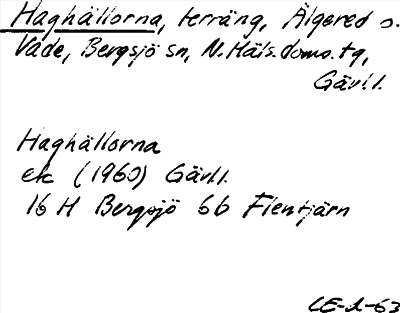 Haghällorna, terräng, Älgered o.
Vade, Bergsjö sn, N. Häls. doms. tg,
Gävl.l.
Haghällorna
ek (1960) Gävl.l.
16 H Bergsjö 6b Flentjärn
CE-1-63